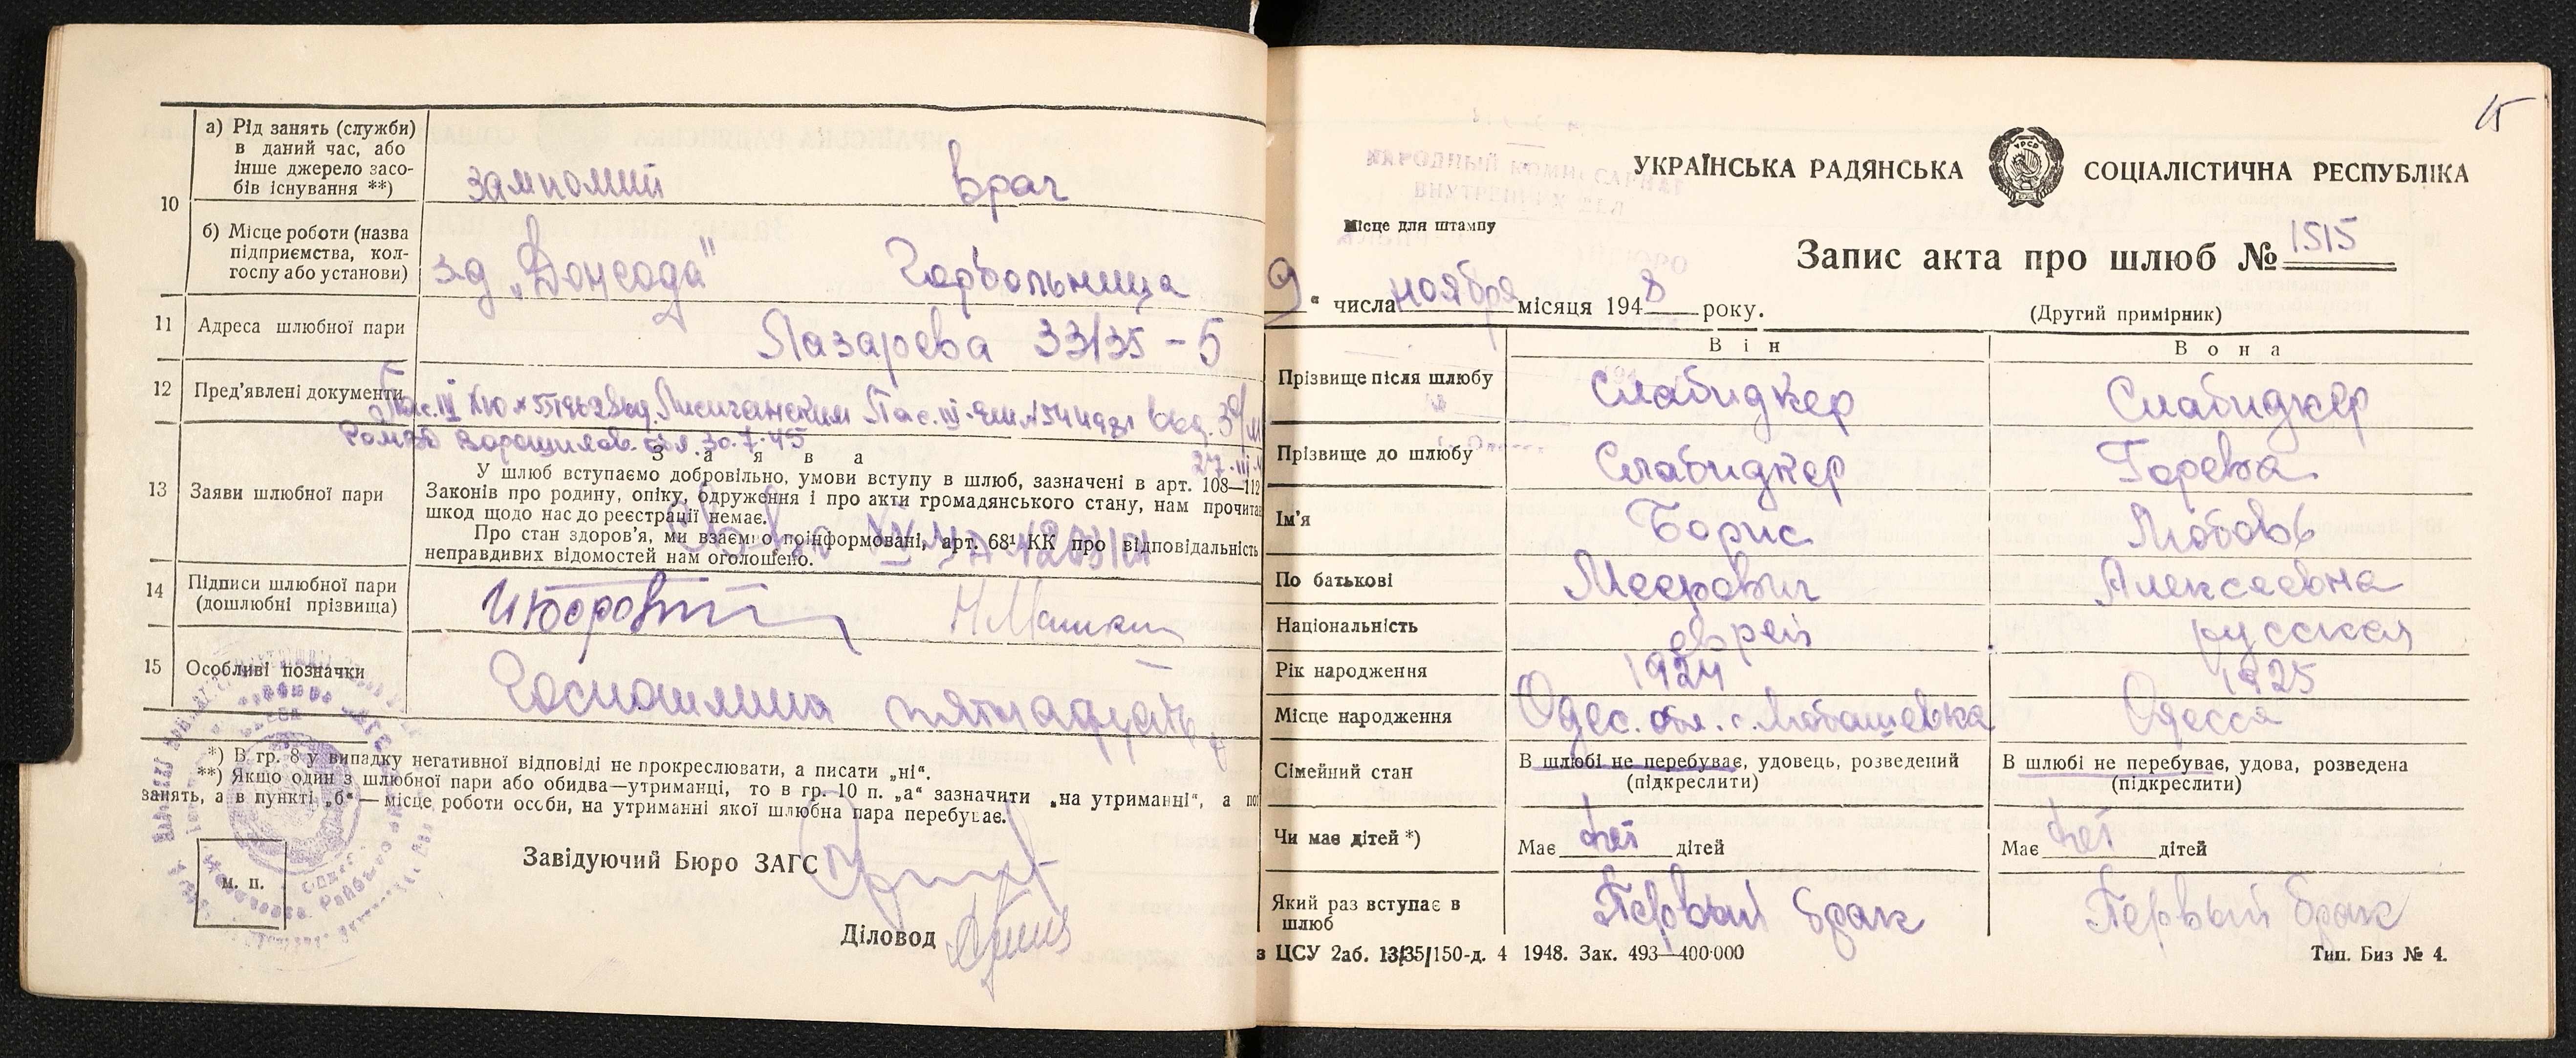 10
а) Рід занять (служби)
в даний час, або
інше джерело засо-
бів існування **)
замполит
врач
б) Місце роботи (назва
підприємства, кол-
госпу або установи)
з-д „Донсода"
Горбольница
11
Адреса шлюбної пари
Лазарева 33/35 - 5
12
Пред'явлені документи
Лисичанским
30.7.45
13
Заяви шлюбної пари
З а я в а
У шлюб вступаємо добровільно, умови вступу в шлюб, зазначені в арт. 108—112
Законів про родину, опіку, одруження і про акти громадянського стану, нам прочита
шкод щодо нас до реєстрації немає.
Про стан здоров'я, ми взаємно поінформовані, арт. 68¹ КК про відповідальність
неправдивих відомостей нам оголошено.
14
Підписи шлюбної пари
(дошлюбні прізвища)
15
Особливі позначки
Госпошлина пятнадцать
*) В гр. 8 у випадку негативної відповіді не прокреслювати, а писати „ні".
**) Якщо один з шлюбної пари або обидва—утриманці, то в гр. 10 п. „а" зазначити „на утриманні", а по
занять, а в пункті „б"—місце роботи особи, на утриманні якої шлюбна пара перебуває.
м. п.
Завідуючий Бюро ЗАГС
Діловод
15
НАРОДНЫЙ КОМИССАРИАТ
ВНУТРЕННИХ ДЕЛ
УКРАЇНСЬКА РАДЯНСЬКА СОЦІАЛІСТИЧНА РЕСПУБЛІКА
Місце для штампу
Запис акта про шлюб № 1515
9 " числа ноября місяця 1948 року.
(Другий примірник)
Він
Вона
Прізвище після шлюбу
Слабиджер
Слабиджер
Прізвище до шлюбу
Слабиджер
Горева
Ім'я
Борис
Любовь
По батькові
Меерович
Алексеевна
Національність
еврей
русская
Рік народження
1924
1925
Місце народження
Одес. обл. с. Любашевка
Одесса
Сімейний стан
В шлюбі не перебуває, удовець, розведений
(підкреслити)
В шлюбі не перебуває, удова, розведена
(підкреслити)
Чи має дітей *)
Має нет дітей
Має нет дітей
Який раз вступає в
шлюб
Первый брак
Первый брак
з ЦСУ 2аб. 13/35/150-д. 4 1948. Зак. 493—400·000
Тип. Биз № 4.